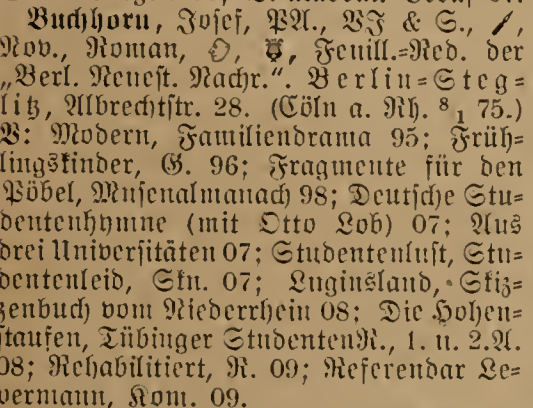 Buchhorn, Josef, PA., VJ & S.,
Nov., Roman, Feuill.=Red. der
„Berl. Neuest. Nachr.“. Berlin=Steg=
litz, Albrechtstr. 28. (Cöln a. Rh. 8/1 75.)
V: Modern, Familiendrama 95; Früh=
lingskinder, G. 96; Fragmente für den
Pöbel, Musenalmanach 98; Deutsche Stu=
dentenhymne (mit Otto Lob) 07; Aus
drei Universitäten 07; Studentenlust, Stu=
dentenleid, Skn. 07; Luginsland, Skiz=
zenbuch vom Niederrhein 08; Die Hohen=
staufen, Tübinger StudentenR., 1. u. 2.A.
08; Rehabilitiert, R. 09; Referendar Le=
vermann, Kom. 09.